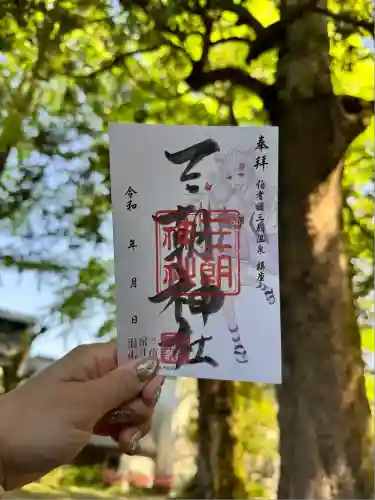 奉拝
伯耆国三朝温泉 鎮座
三朝神社
三朝
神社
令和 年 月 日